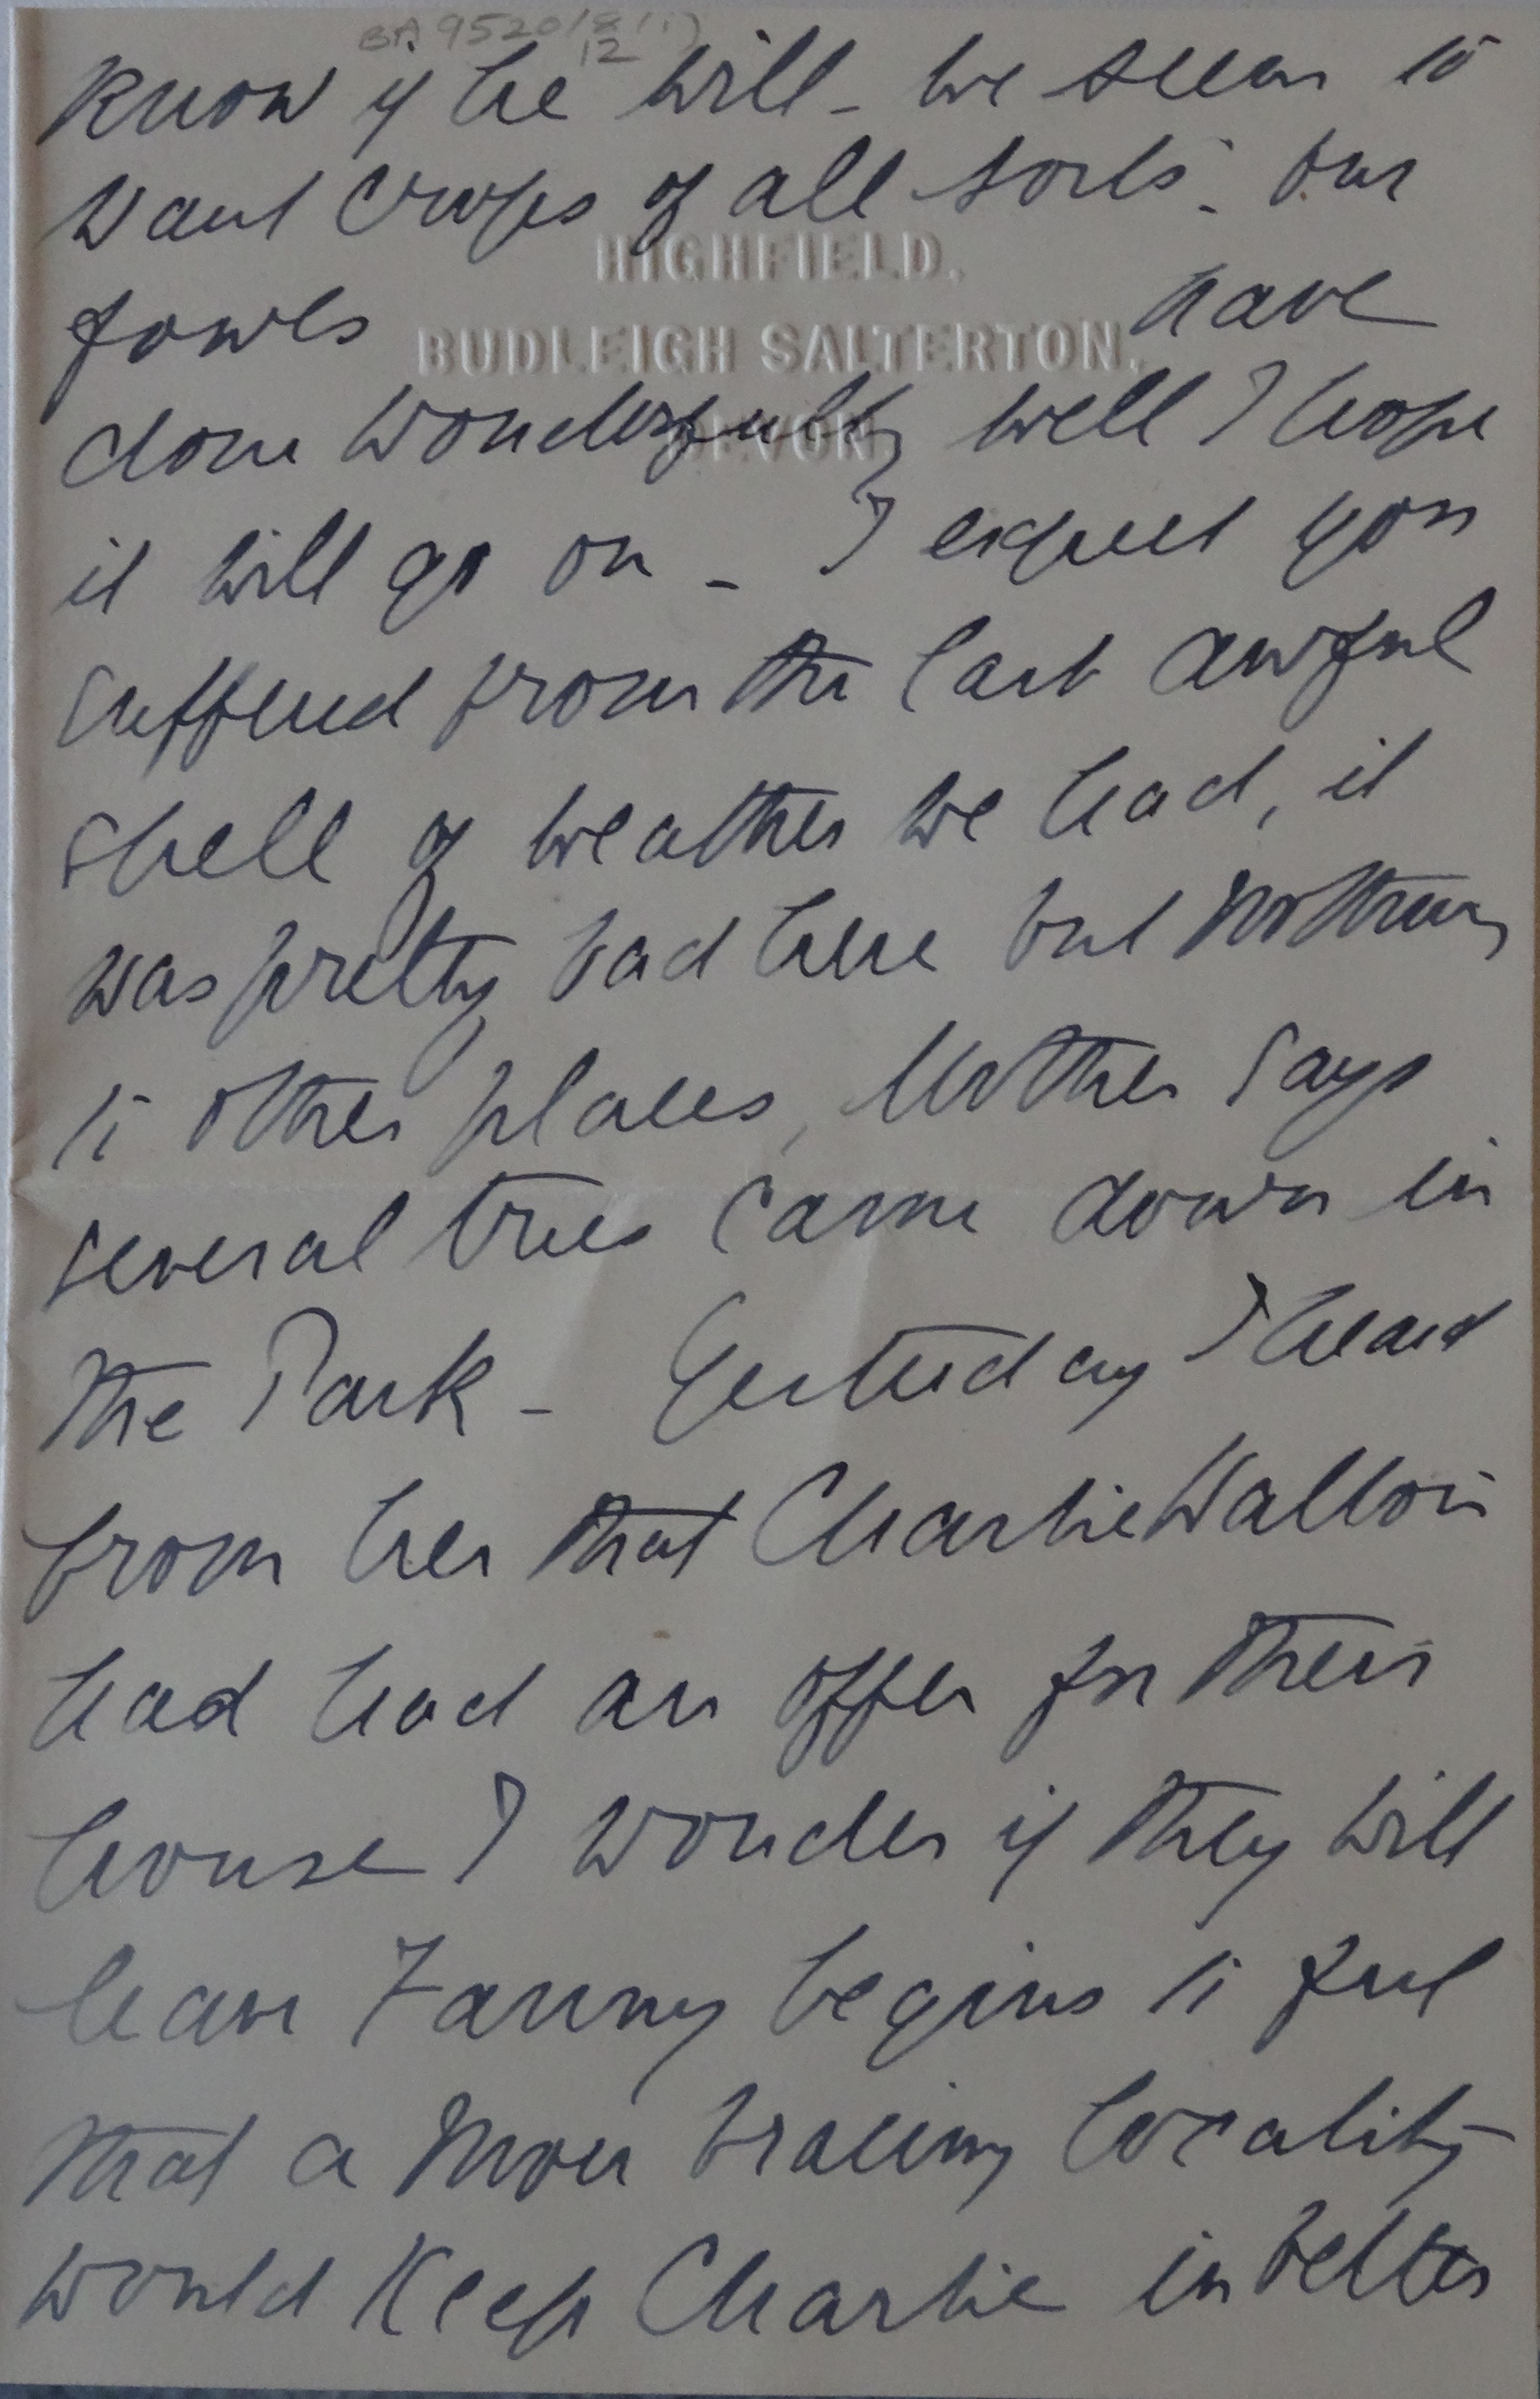 BA 9520/8(i)
12
know if he will - we seem to
want crops of all sorts - our
HIGHFIELD.
fowls have
BUDLEIGH SALTERTON.
done wonderfully well I hope
DEVON
it will go on - I expect you
suffered from the last awful
spell of weather we had, it
was pretty bad here but nothing
to other places, Mother says
several trees came down in
the Park - Yesterday I heard
from her that Charlie
had had an offer for their
house I wonder if they will
leave Fanny begins to feel
that a more bracing locality
would keep Charlie in better